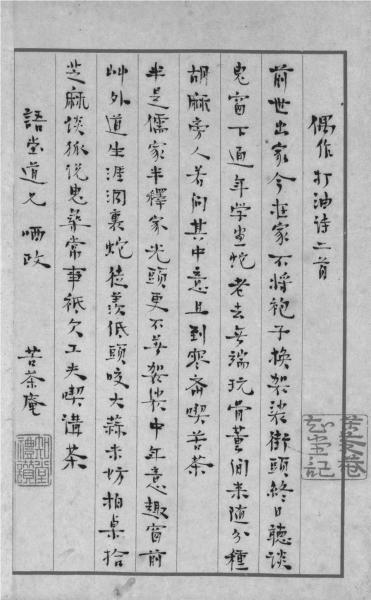 偶作打油诗二首
前世出家今在家不将袍子换袈裟街頭終日聽談
鬼窗下通年学画蛇老去无端玩骨董閒来随分種
胡麻旁人若问其中意且到寒斎喫苦茶
半是儒家半釋家光頭更不著袈裟中年意趣窗前
艸外道生涯洞裏蛇徒羡低頭咬大蒜未妨拍桌拾
芝麻談狐说鬼尋常事衹欠工夫喫講茶
語堂道兄哂政 苦茶庵